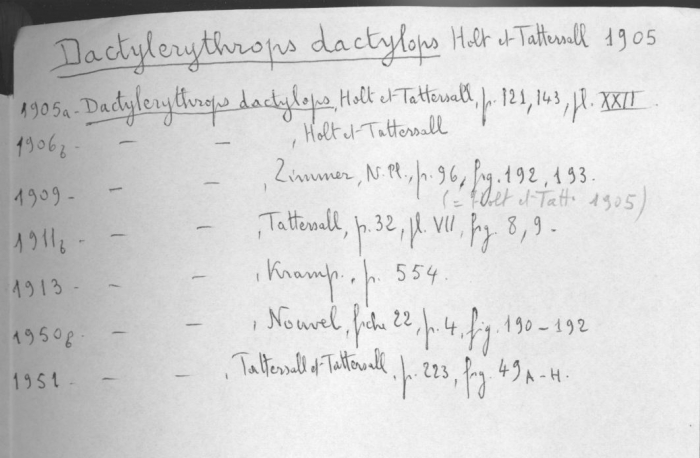 Dactylerythrops dactylops Holt et Tattersall 1905
1905a - Dactylerythrops dactylops, Holt et Tattersall, p. 121, 143, pl. XXII.
1906b - — — , Holt et Tattersall
1909 - — — , Zimmer, N. Pl., p. 96, fig. 192, 193.
(= Holt et Tatt. 1905)
1911b - — — , Tattersall, p. 32, pl. VII, fig. 8, 9 -
1913 - — — , Kramp., p. 554.
1950b - — — , Nouvel, fiche 22, p. 4, fig. 190-192
1951 - — — , Tattersall et Tattersall, p. 223, fig. 49 A-H.